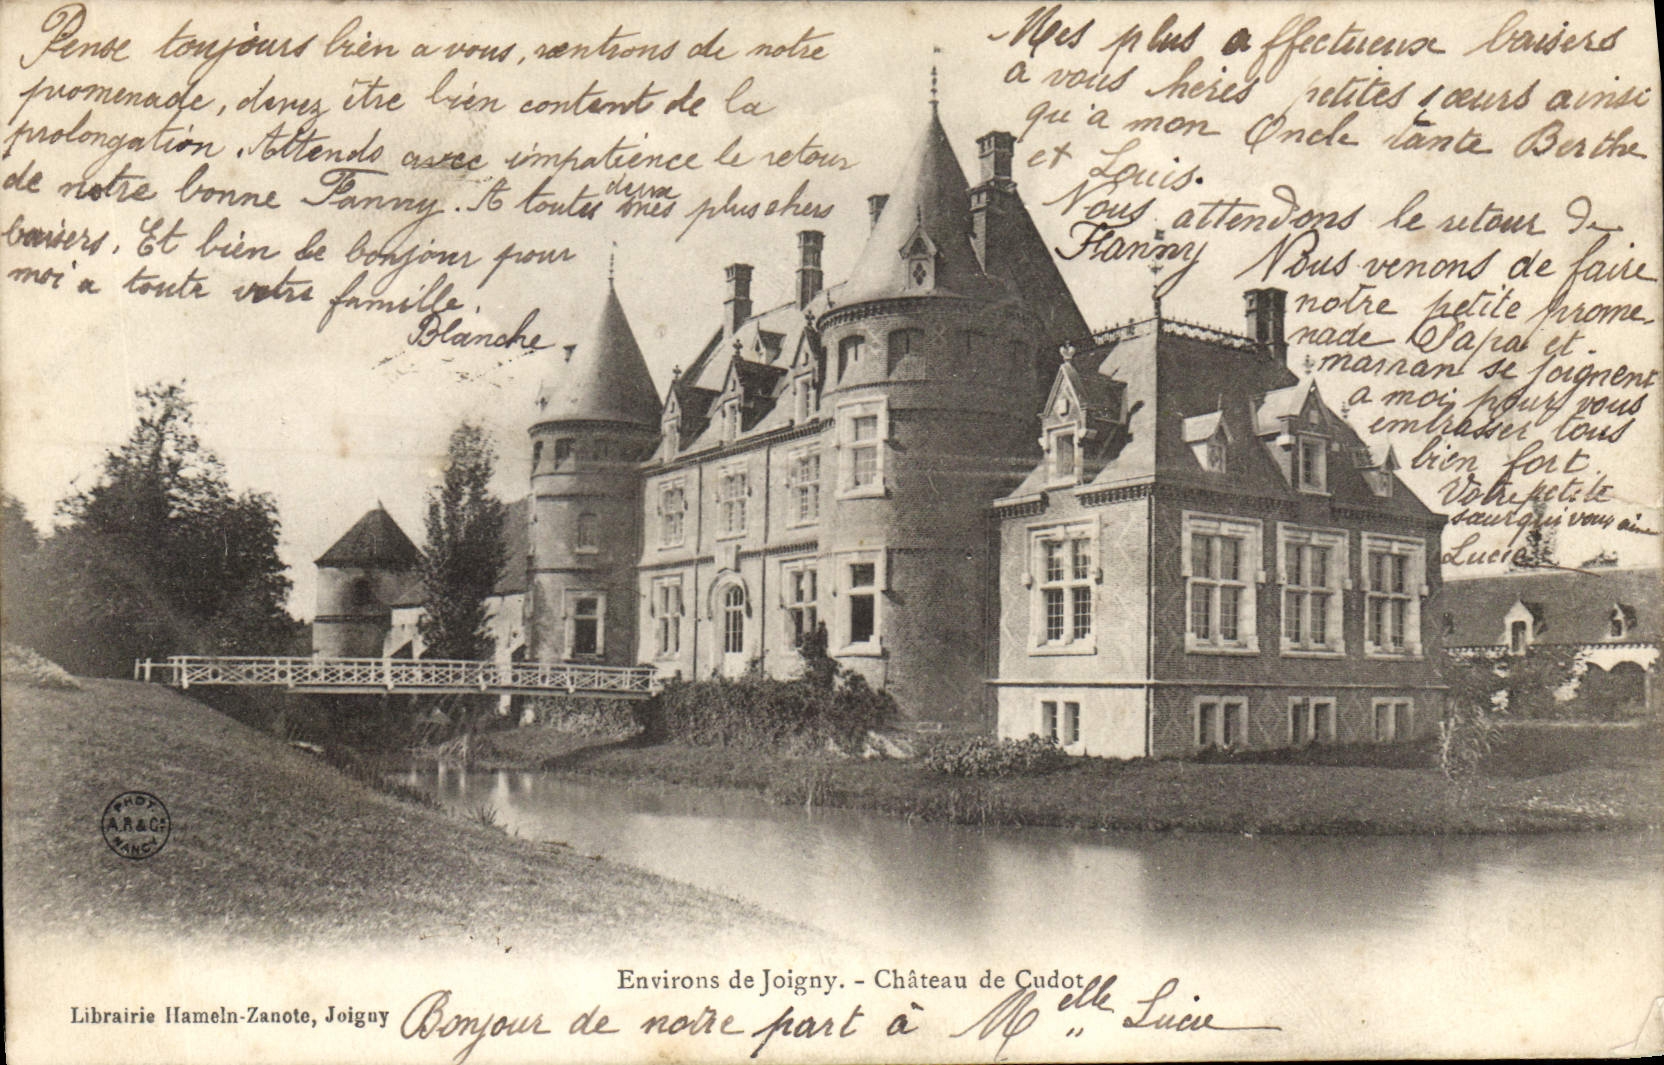 Pense toujours bien a vous, rentrons de notre
promenade, devez être bien content de la
prolongation. Attends avec impatience le retour
de notre bonne Fanny. A toutes deux mes plus chers
baisers. Et bien le bonjour pour
moi a toute votre famille.
Blanche
Mes plus affectueux baisers
a vous chéres petites sœurs ainsi
qu'a mon Oncle tante Berthe
et Louis.
Nous attendons le retour de
Fanny Nous venons de faire
notre petite prome-
nade Papa et
maman se joignent
a moi pour vous
embrasser tous
bien fort.
Votre petite
sœur qui vous aime
Lucie
PHOT.
A.B & Cie
NANCY
Environs de Joigny. - Château de Cudot
Librairie Hameln-Zanote, Joigny
Bonjour de notre part à Melle Lucie